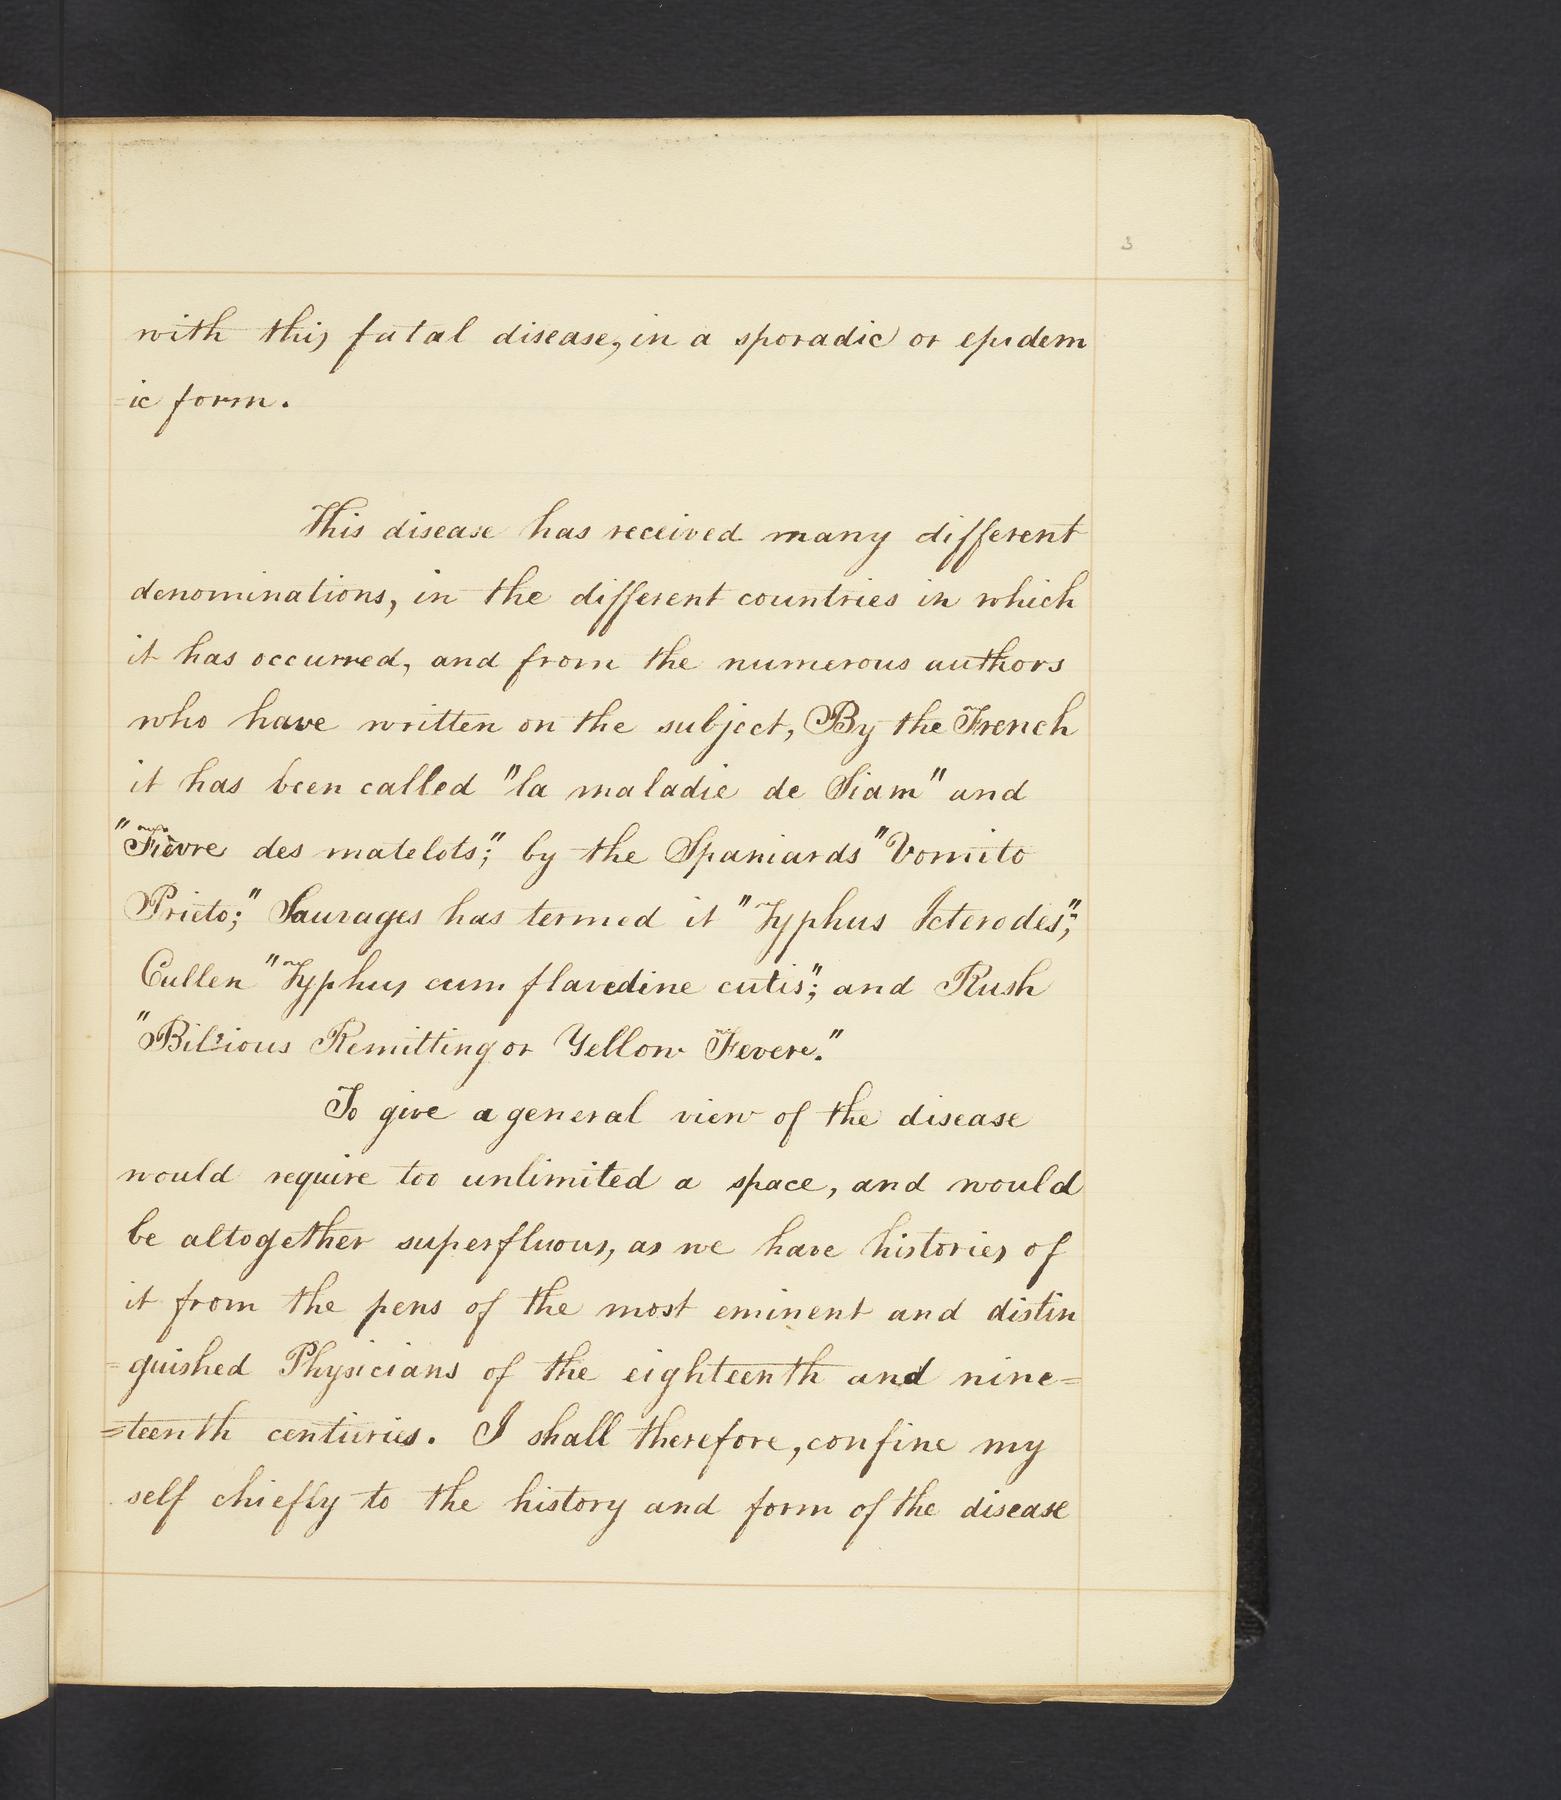 3
with this fatal disease, in a sporadic or epidem
=ic form.
This disease has received many different
denominations, in the different countries in which
it has occurred, and from the numerous authors
who have written on the subject, By the French
it has been called "la maladie de Siam" and
"Fièvre des matelots;" by the Spaniards "Vomito
Prieto;" Sauvages has termed it "Typhus Icterodes";
Cullen "Typhus cum flavedine cutis"; and Rush
"Bilious Remitting or Yellow Fevere."
To give a general view of the disease
would require too unlimited a space, and would
be altogether superfluous, as we have histories of
it from the pens of the most eminent and distin
=guished Physicians of the eighteenth and nine=
=teenth centuries. I shall therefore, confine my
self chiefly to the history and form of the disease